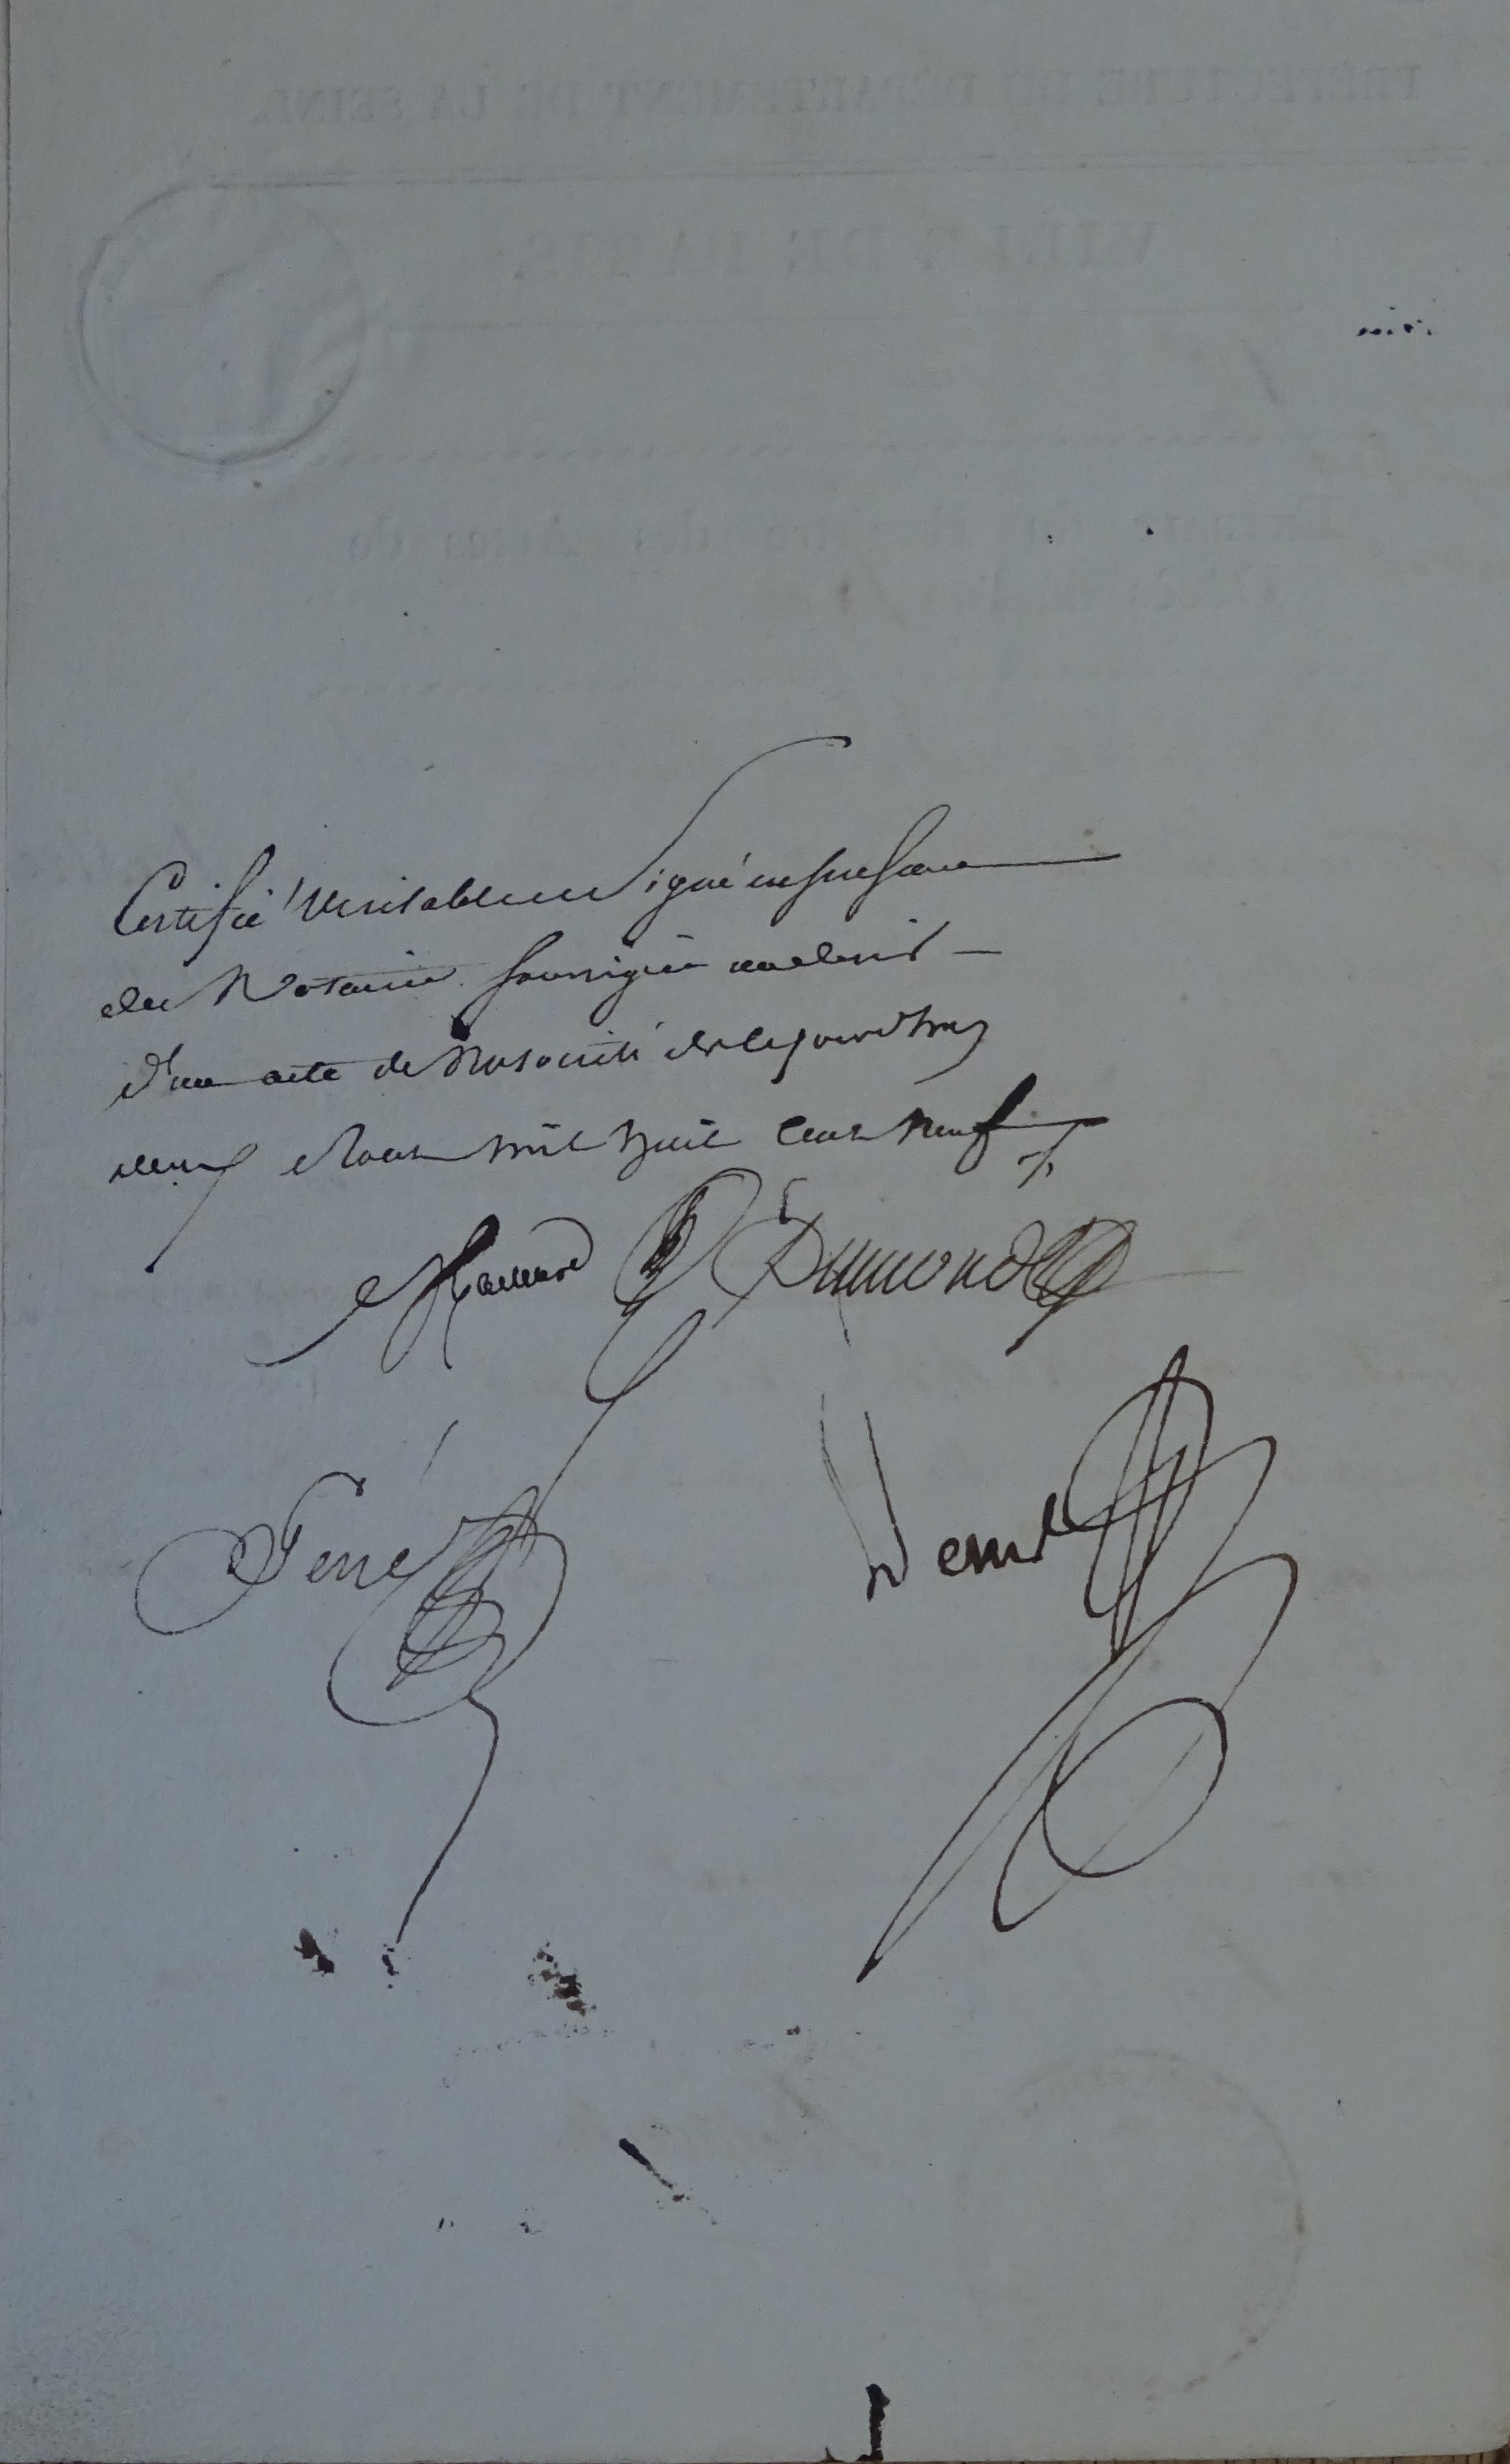 Certifié véritable et signé en presence
des Notaires soussignés au desir
d'un acte de Notoriété de cejourd'huy
deux Aout mil huit cent neuf
Dumond
Ferré